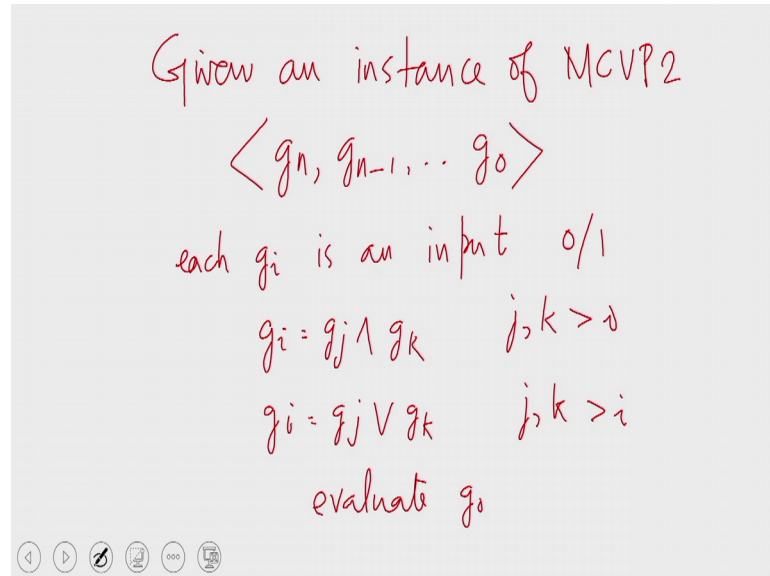 Given an instance of MCVP2
< gn, gn-1, .. g0 >
each gi is an input 0/1
gi = gj ∧ gk j, k > i
gi = gj ∨ gk j, k > i
evaluate g0